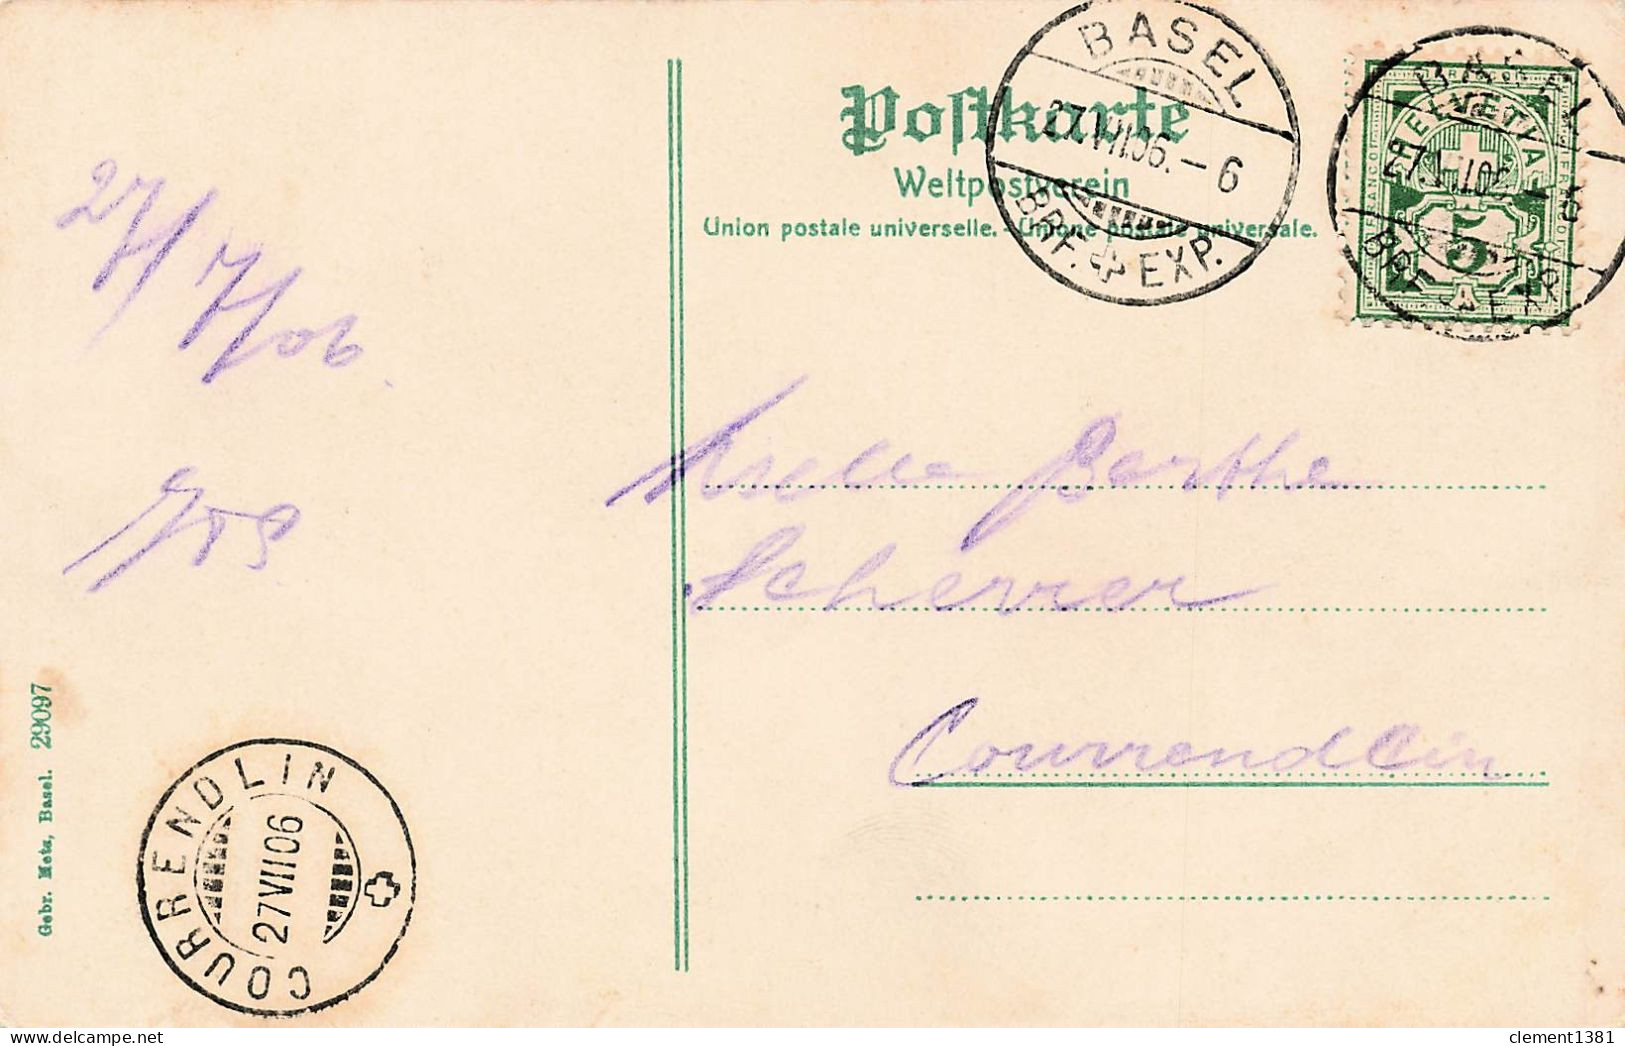 BASEL
27.VII.06.-6
BRF. EXP.
BASEL
27.VII.06.-6
BRF. EXP.
FRANCO
HELVETIA
5
Postkarte
Weltpostverein
Union postale universelle. - Unione postale universale.
27/7/06.
Berthe
Scherrer
Courrendlin
Gebr. Metz, Basel. 29097
COURRENDLIN
27 VII 06
clement1381